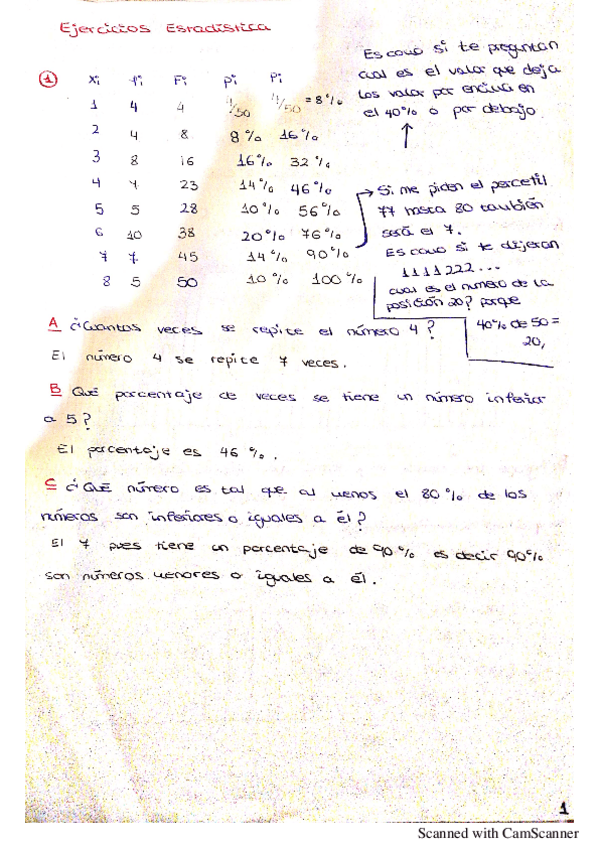 Ejercicios Estadística
① xi fi Fi pi Pi
1 4 4 4/50 4/50 = 8%
2 4 8 8% 16%
3 8 16 16% 32%
4 7 23 14% 46%
5 5 28 10% 56%
6 10 38 20% 76%
7 7 45 14% 90%
8 5 50 10% 100%
Es como si te preguntan
cual es el valor que deja
los valor por encima en
el 40% o por debajo
Si me piden el percetil
77 hasta 80 también
será el 7.
Es como si te dijeran
1111222...
cual es el numero de la
posición 20? porque
40% de 50 =
20,
A ¿Cuantas veces se repite el número 4?
El número 4 se repite 7 veces.
B Qué porcentaje de veces se tiene un número inferior
a 5?
El porcentaje es 46%.
C ¿Qué número es tal que al menos el 80% de los
números son inferiores o iguales a él?
El 7 pues tiene un porcentaje de 90% es decir 90%
son números menores o iguales a él.
1
Scanned with CamScanner